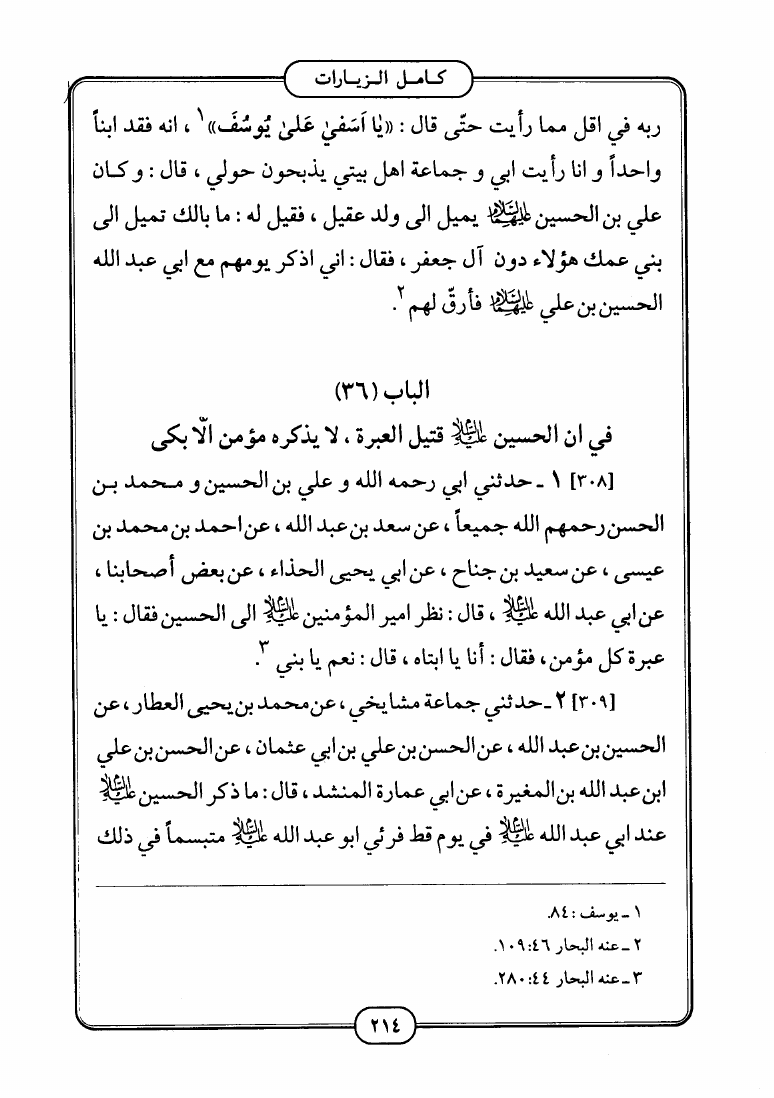 كـامـل الـزيـارات
ربه في اقل مما رأيت حتّى قال : «يٰا اَسَفىٰ عَلىٰ يُوسُفَ»١ ، انه فقد ابناً
واحداً و انا رأيت ابي و جماعة اهل بيتي يذبحون حولي ، قال : و كـان
علي بن الحسين عليهما السلام يميل الى ولد عقيل ، فقيل له : ما بالك تميل الى
بني عمك هؤلاء دون آل جعفر ، فقال : اني اذكر يومهم مع ابي عبد الله
الحسين بن علي عليهما السلام فأرقّ لهم٢.
الباب (٣٦)
في ان الحسين عليه السلام قتيل العبرة ، لا يذكره مؤمن الّا بكى
[٣٠٨] ١ ـ حدثني ابي رحمه الله و علي بن الحسين و مـحمد بـن
الحسن رحمهم الله جميعاً ، عن سعد بن عبد الله ، عن احمد بن محمد بن
عيسى ، عن سعيد بن جناح ، عن ابي يحيى الحذاء ، عن بعض أصحابنا ،
عن ابي عبد الله عليه السلام ، قال : نظر امير المؤمنين عليه السلام الى الحسين فقال : يا
عبرة كل مؤمن، فقال : أنا يا ابتاه ، قال : نعم يا بني ٣.
[٣٠٩] ٢ ـ حدثني جماعة مشايخي ، عن محمد بن يحيى العطار ، عن
الحسين بن عبد الله ، عن الحسن بن علي بن ابي عثمان ، عن الحسن بن علي
ابن عبد الله بن المغيرة ، عن ابي عمارة المنشد ، قال : ما ذكر الحسين عليه السلام
عند ابي عبد الله عليه السلام في يوم قط فرئي ابو عبد الله عليه السلام متبسماً في ذلك
١ ـ يوسف : ٨٤.
٢ ـ عنه البحار ٤٦:١٠٩.
٣ ـ عنه البحار ٤٤:٢٨٠.
٢١٤